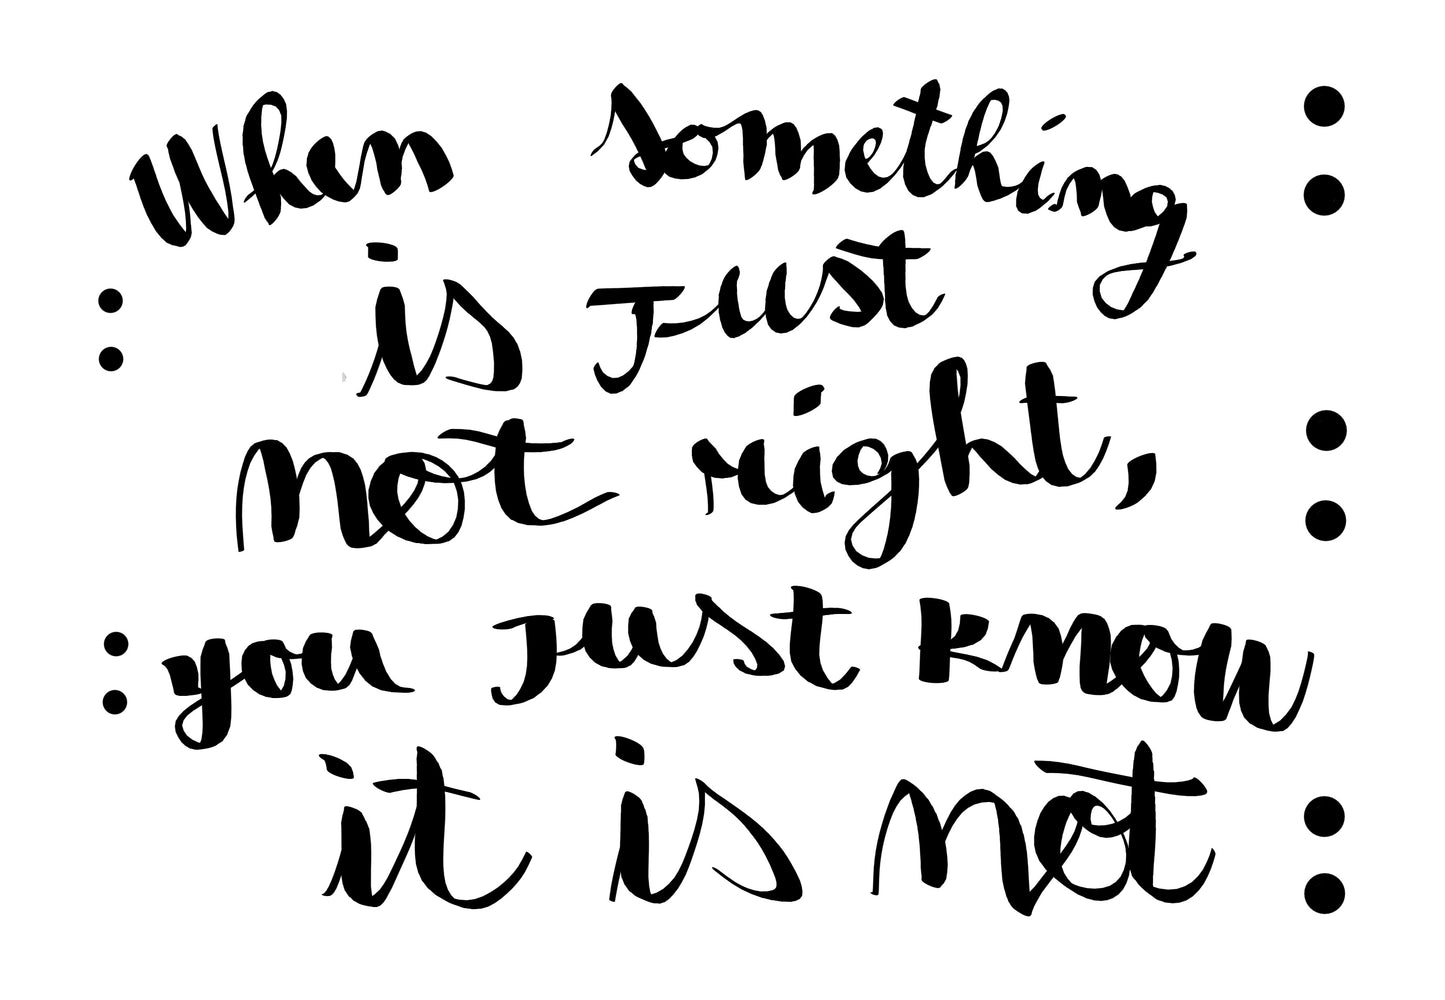 When something
is just
not right,
you just know
it is not